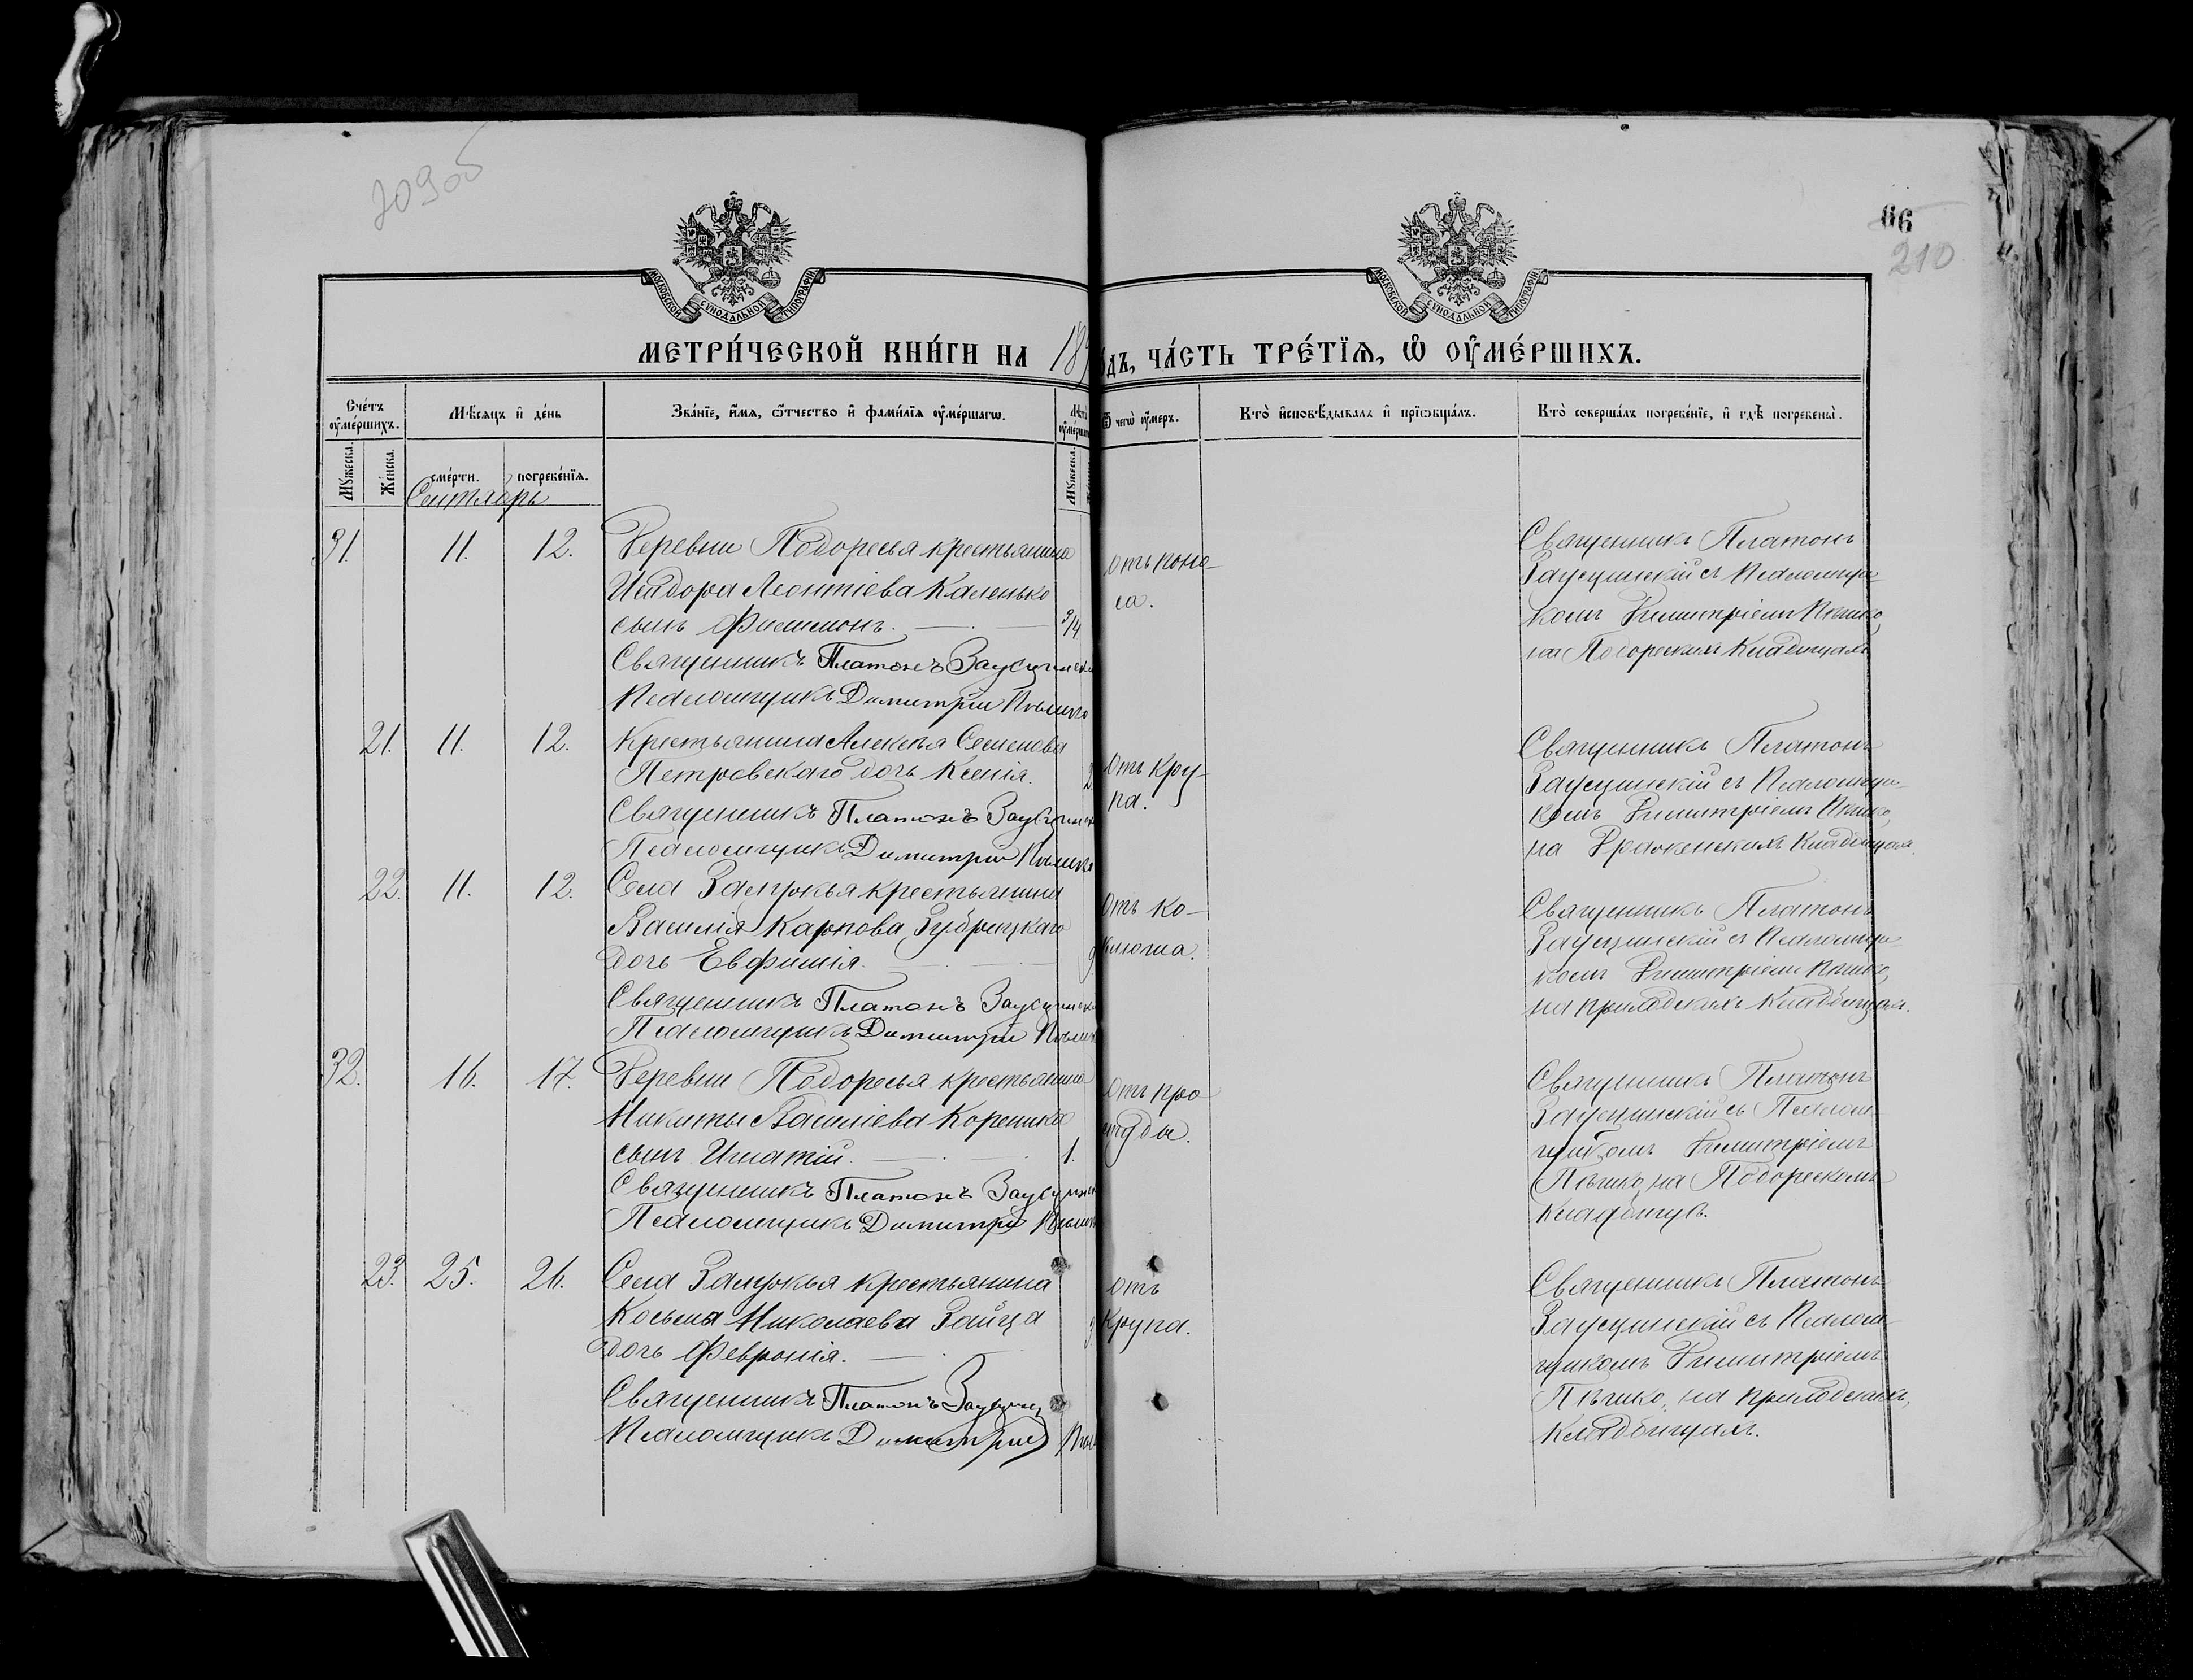 209об
66
210
МОСКОВСКОЙ СУНОДАЛЬНОЙ ТИПОГРАФИИ
МОСКОВСКОЙ СУНОДАЛЬНОЙ ТИПОГРАФИИ
МЕТРИ́ЧЕСКОЙ КНИ́ГИ НА 18
ѻ́дъ, ЧА́СТЬ ТРЕ́ТЇѦ, Ѡ ОУ҆МЕ́РШИХЪ.
Сче́тъ оу҆ме́ршихъ.
Мѣ́сяцъ и҆ де́нь
Зва́нїе, и҆́мя, ѻ҆́тчество и҆ фами́лїя оу҆ме́ршагѡ.
Лѣта оу҆ме́ршаг
Ѿ чегѡ̀ оу҆́меръ.
Кто̀ и҆сповѣ́дывалъ и҆ прїѡбща́лъ.
Кто̀ соверша́лъ погребе́нїе, и҆ гдѣ̀ погребены̀.
Мꙋ́жеска.
Же́нска.
сме́рти.
погребе́нїя.
Мꙋ́жеска.
Сентябрь
31. 11. 12. Деревни Подоресья крестьянина
Исидора Леонтіева Каленько
сынъ Филимонъ. 3/4
Священникъ Платонъ Заусцинск
Псаломщикъ Димитрій Пѣшко
Отъ поно-
са.
Священникъ Платонъ
Заусцинскій съ Псаломщи-
комъ Димитріемъ Пѣшко,
на Подорескихъ Кладбищахъ
21. 11. 12. Крестьянина Алексѣя Семенова
Петровскаго дочь Ксенія.
Священникъ Платонъ Заусцинск
Псаломщикъ Димитрій Пѣшко
Отъ кру-
па.
Священникъ Платонъ
Заусцинскій съ Псаломщи-
комъ Димитріемъ Пѣшко,
на Кладбищахъ.
22. 11. 12. Села Замужья крестьянина
Василія Карпова Зубрицкаго
дочь Евфимія.
Священникъ Платонъ Заусцинск
Псаломщикъ Димитрій Пѣшк
Отъ ко-
клюша.
Священникъ Платонъ
Заусцинскій съ Псаломщи-
комъ Димитріемъ Пѣшко,
на приходскихъ Кладбищахъ.
32. 16. 17. Деревни Подоресья крестьянина
Никиты Василіева Коренько
сынъ Игнатій. 1.
Священникъ Платонъ Заусцинск
Псаломщикъ Димитрій Пѣшк
Отъ про
студы.
Священникъ Платонъ
Заусцинскій съ Псалом-
щикомъ Димитріемъ
Пѣшко, на Подорескомъ
Кладбищѣ.
23. 25. 26. Села Замужья крестьянина
Косьмы Николаева Зайца
дочь Февронія.
Священникъ Платонъ Заусцин
Псаломщикъ Димитрій Пѣш
Отъ
Крупа.
Священникъ Платонъ
Заусцинскій съ Псалом-
щикомъ Димитріемъ
Пѣшко, на приходскихъ
Кладбищахъ.